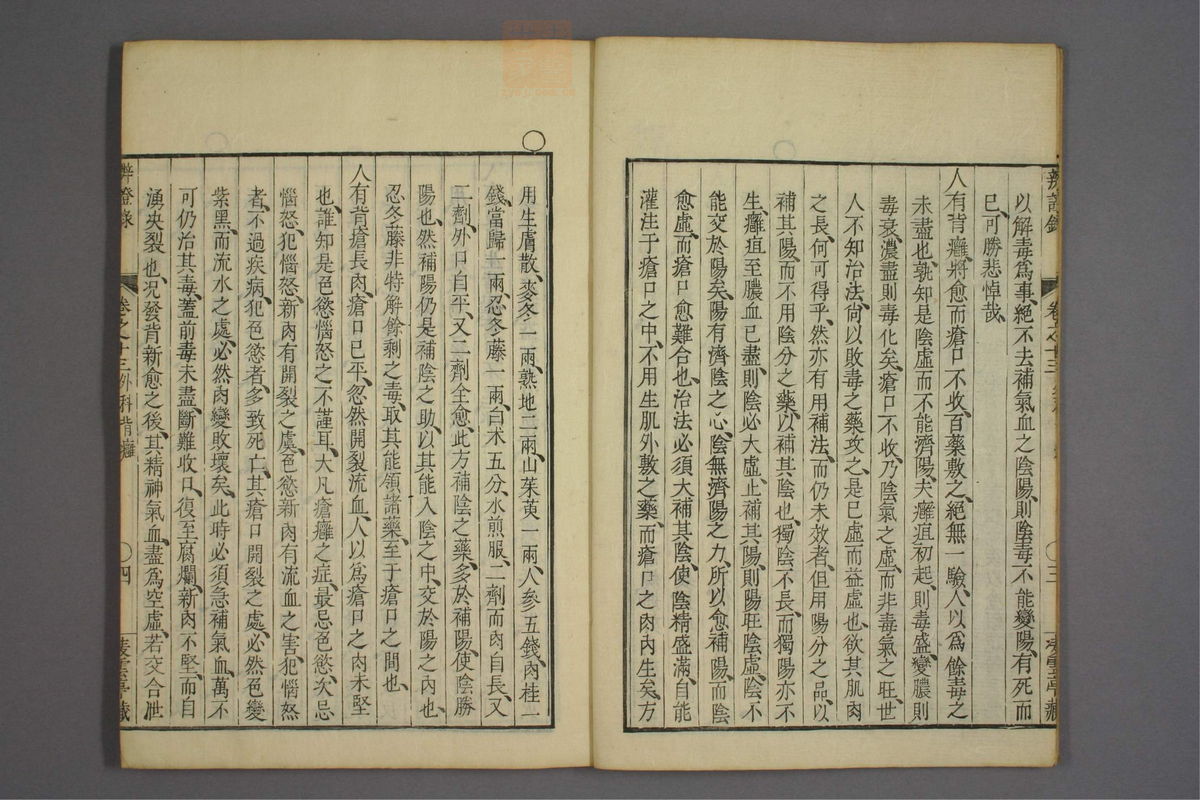 辨證錄 卷之十三 三
以解毒爲事絕不去補氣血之陰陽則陰毒不能變陽有死而
已可勝悲悼哉
人有背癰將愈而瘡口不收百藥敷之絕無一驗人以爲餘毒之
未盡也孰知是陰虛而不能濟陽夫癰疽初起則毒盛變膿則
毒衰濃盡則毒化矣瘡口不收乃陰氣之虛而非毒氣之旺世
人不知治法尙以敗毒之藥攻之是已虛而益虛也欲其肌肉
之長何可得乎然亦有用補法而仍未效者但用陽分之品以
補其陽而不用陰分之藥以補其陰也獨陰不長而獨陽亦不
生癰疽至膿血已盡則陰必大虛止補其陽則陽旺陰虛陰不
能交於陽矣陽有濟陰之心陰無濟陽之力所以愈補陽而陰
愈虛而瘡口愈難合也治法必須大補其陰使陰精盛滿自能
灌注于瘡口之中不用生肌外敷之藥而瘡口之肉內生矣方
用生膚散麥冬一兩熟地二兩山茱萸一兩人參五錢肉桂一
錢當歸一兩忍冬藤一兩白术五分水煎服二劑而肉自長又
二劑外口自平又二劑全愈此方補陰之藥多於補陽使陰勝
陽也然補陽仍是補陰之助以其能入陰之中交於陽之內也
忍冬藤非特解餘剩之毒取其能領諸藥至于瘡口之間也
人有背瘡長肉瘡口已平忽然開裂流血人以爲瘡口之肉未堅
也誰知是色慾惱怒之不謹耳大凡瘡癰之症最忌色慾次忌
惱怒犯惱怒新肉有開裂之虞色慾新肉有流血之害犯惱怒
者不過疾病犯色慾者多致死亡其瘡口開裂之處必然色變
紫黑而流水之處必然肉變敗壞矣此時必須急補氣血萬不
可仍治其毒蓋前毒未盡斷難收口復至腐爛新肉不堅而自
湧央裂也况發背新愈之後其精神氣血盡爲空虛若交合泄
辨證錄 卷之十三外科背癰 四